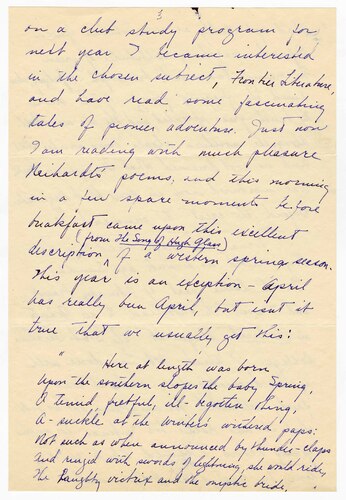 3
on a club study program for
next year I became interested
in the chosen subject, Frontier Literature,
and have read some fascinating
tales of pioneer adventure. Just now
I am reading with much pleasure
Neihardt's poems, and this morning
in a few spare moments before
breakfast came upon this excellent
(from The Song of Hugh Glass)
description ^ of a western spring season.
This year is an exception - April
has really been April, but isn't it
true that we usually get this:
" Here at length was born
Upon the southern slopes the baby Spring,
A timid, fretful, ill-begotten thing,
A-suckle at the Winter's withered paps:
Not such as when announced by thunder-claps
And ringed with swords of lightning, she would ride,
The haughty victrix and the mystic bride,